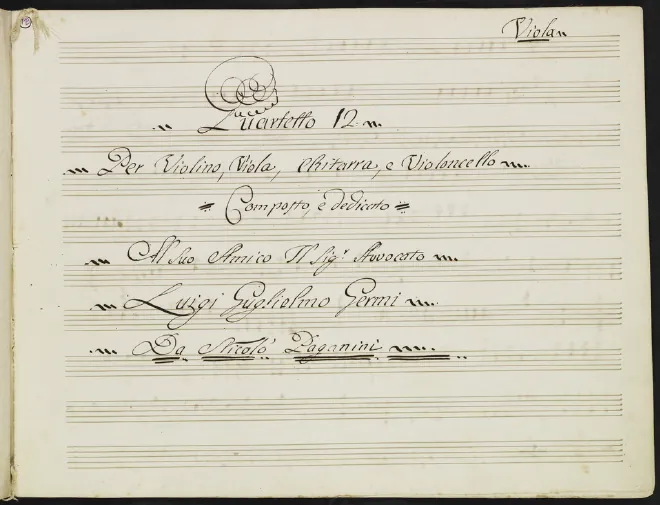 Viola
Quartetto 12
Per Violino, Viola, Chitarra, e Violoncello
Composto, e dedicato
Al Suo Amico Il Sigr. Avvocato
Luigi Guglielmo Germi
Da Nicolò Paganini